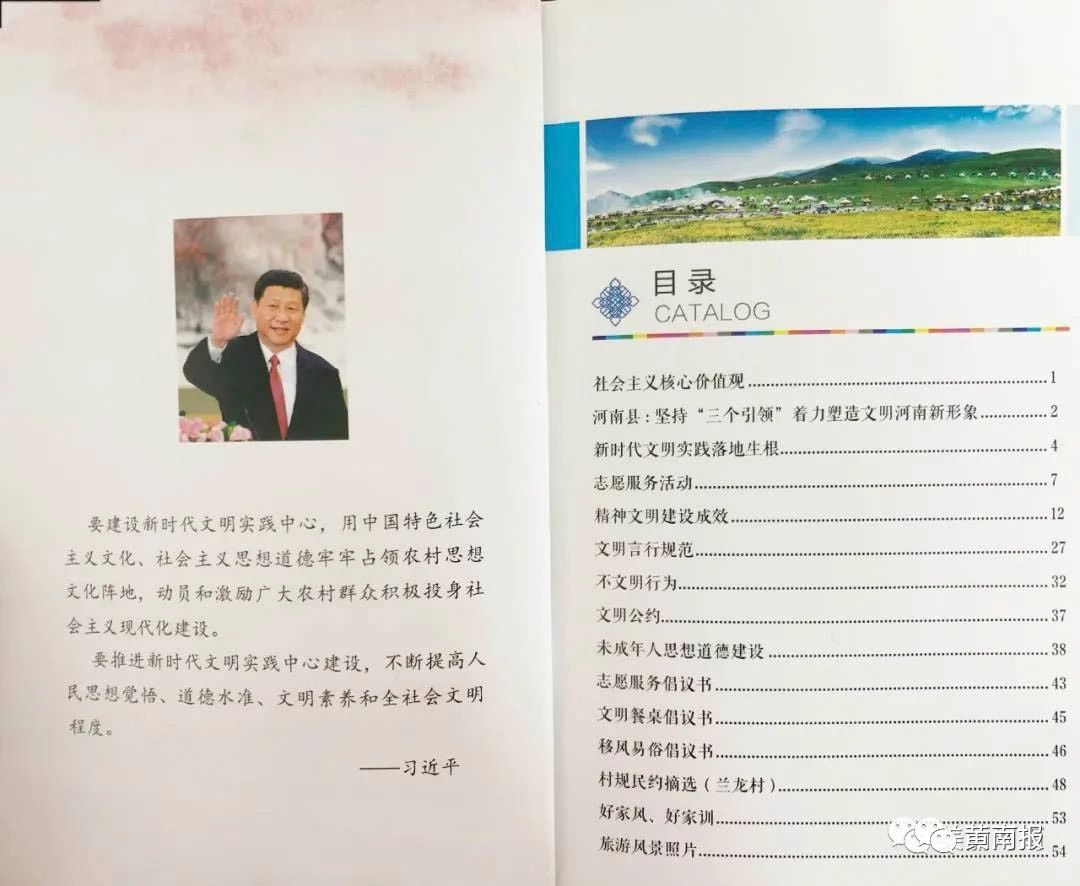 要建设新时代文明实践中心，用中国特色社会
主义文化、社会主义思想道德牢牢占领农村思想
文化阵地，动员和激励广大农村群众积极投身社
会主义现代化建设。
要推进新时代文明实践中心建设，不断提高人
民思想觉悟、道德水准、文明素养和全社会文明
程度。
——习近平
目录
CATALOG
社会主义核心价值观 1
河南县：坚持“三个引领”着力塑造文明河南新形象 2
新时代文明实践落地生根 4
志愿服务活动 7
精神文明建设成效 12
文明言行规范 27
不文明行为 32
文明公约 37
未成年人思想道德建设 38
志愿服务倡议书 43
文明餐桌倡议书 45
移风易俗倡议书 46
村规民约摘选（兰龙村） 48
好家风、好家训 53
旅游风景照片 54
黄南报